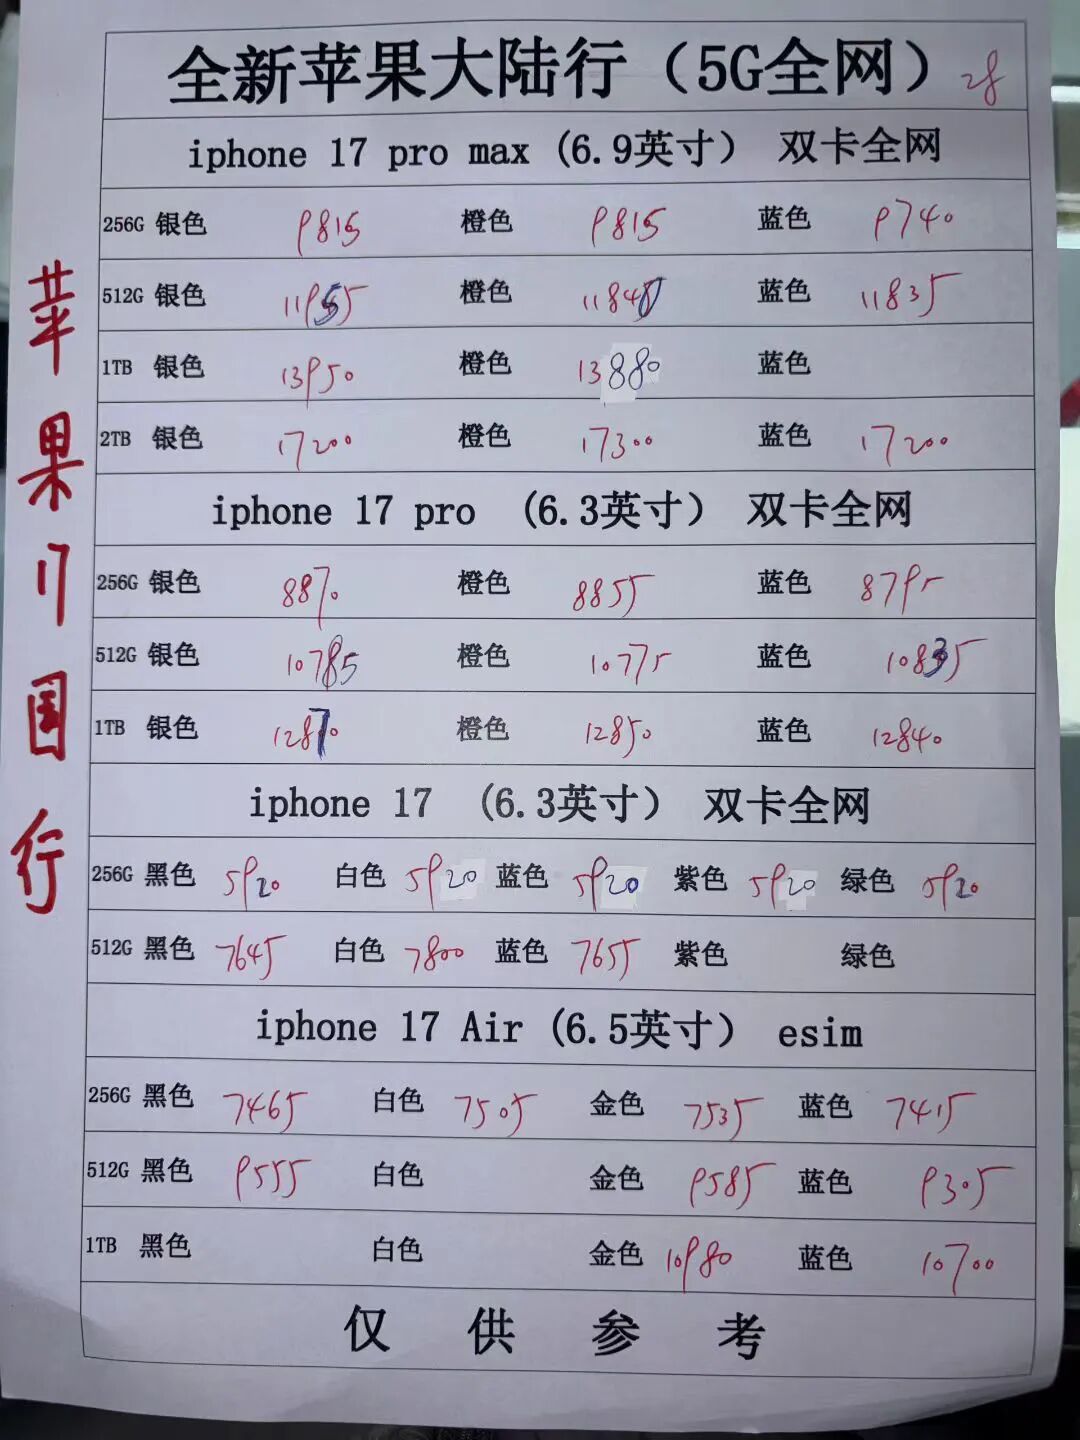 全新苹果大陆行（5G全网） 28
iphone 17 pro max (6.9英寸） 双卡全网
256G 银色 9815 橙色 9815 蓝色 9740
512G 银色 11955 橙色 蓝色 11835
1TB 银色 13950 橙色 13880 蓝色
2TB 银色 17200 橙色 17300 蓝色 17200
iphone 17 pro (6.3英寸） 双卡全网
256G 银色 8870 橙色 8855 蓝色 8795
512G 银色 10785 橙色 10775 蓝色 10835
1TB 银色 12870 橙色 12850 蓝色 12840
iphone 17 (6.3英寸） 双卡全网
256G 黑色 5920 白色 5920 蓝色 5920 紫色 5920 绿色 5920
512G 黑色 7645 白色 7800 蓝色 7655 紫色 绿色
iphone 17 Air (6.5英寸） esim
256G 黑色 7465 白色 7505 金色 7535 蓝色 7415
512G 黑色 9555 白色 金色 9585 蓝色 9305
1TB 黑色 白色 金色 10980 蓝色 10700
仅供参考
苹果17国行